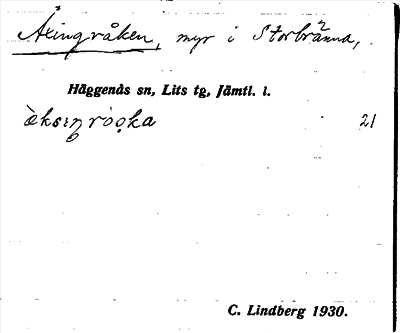 Åxingråken, myr i Storbränna,
Häggenås sn, Lits tg, Jämtl. l.
21
C. Lindberg 1930.